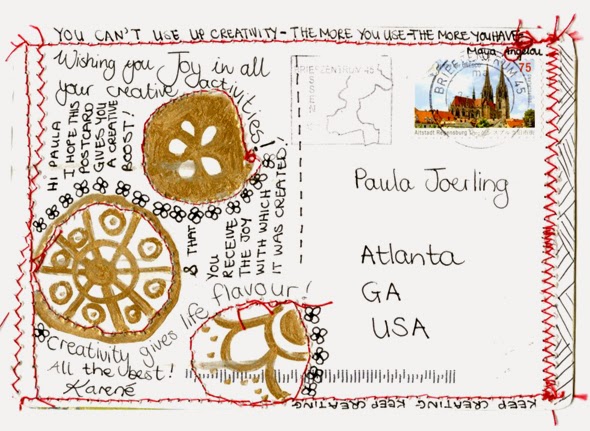 YOU CAN'T USE UP CREATIVITY - THE MORE YOU USE - THE MORE YOU HAVE
Maya Angelou
Wishing you Joy in all
your creative activities!
HI PAULA
I HOPE THIS
POSTCARD
GIVES YOU
A CREATIVE
BOOST!!
& THAT
YOU
RECEIVE
THE JOY
WITH WHICH
IT WAS CREATED!
Creativity gives life flavour!
All the best!
Karené
BRIEFZENTRUM 45
ESSEN
BRIEFZENTRUM 45
75
Altstadt Regensburg
Paula Joerling
Atlanta
GA
USA
KEEP CREATING KEEP CREATING